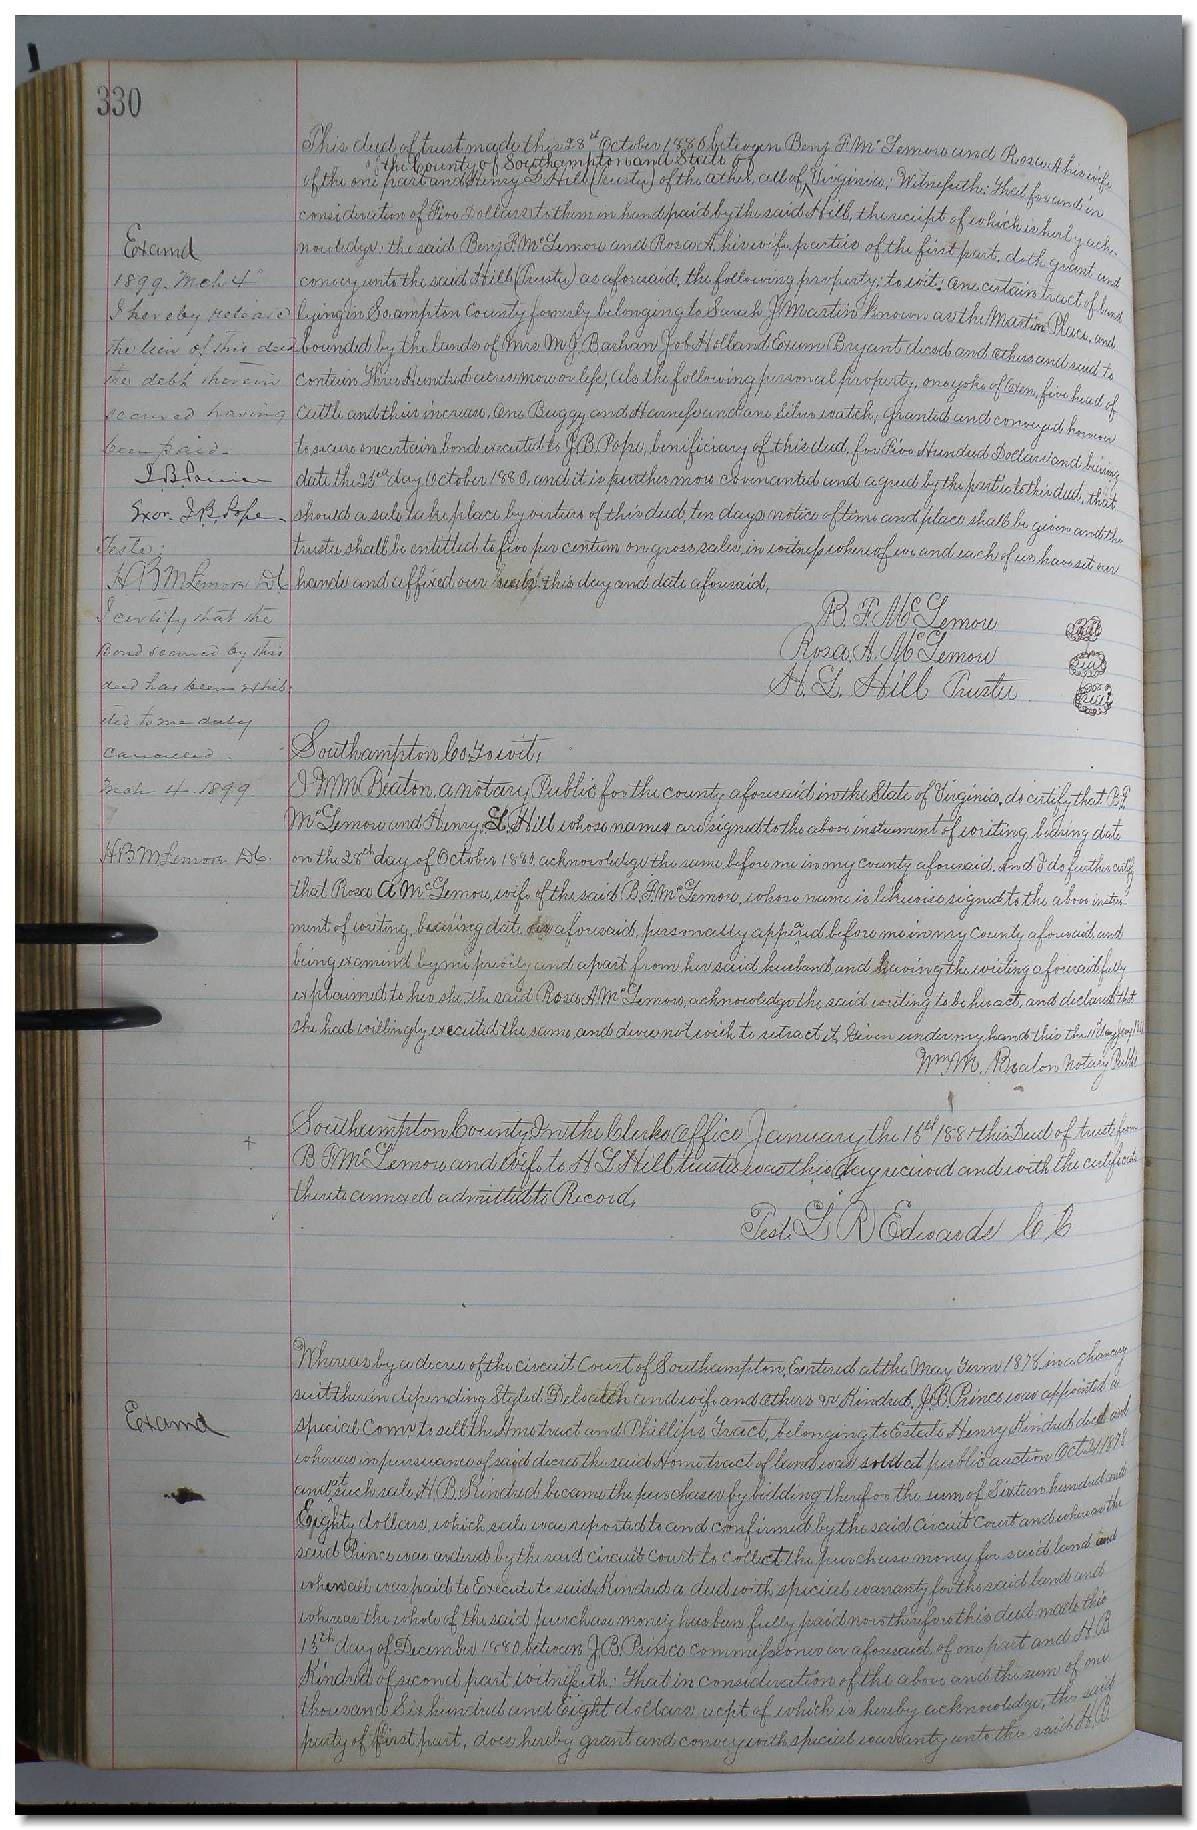 330
This deed of trust made this 28th October 1880 between Benj F McLemore and Rosa A his wife
of the County of Southampton and State of
of the one part and Henry L Hill (Trustee) of the other, all of Virginia; Witnesseth: That for and in
consideration of Five Dollars to them in hand paid by the said Hill, the receipt of which is herby ack-
nowledge, the said Benj F McLemore and Rosa A his wife parties of the first part, doth grant and
convey unto the said Hill (Trustee) as aforesaid, the following property; to wit: One certain tract of land
lying in So,ampton County formerly belonging to Sarah J Martin known as the Martin Place, and
bounded by the lands of Mrs M J. Barham Job Holland Exum Bryant decsd and others and said to
contain Three Hundred acres more or less, Als the following personal property, one yoke of Oxen, five head of
Cattle and their increase, One Buggy and Harness and one Silver watch; granted and conveyed however
to secure one certain bond executed to J. B. Pope, benificiary of this deed, for Five Hundred Dollars and bearing
date the 25th day October 1880, and it is further more covenanted and agreed by the parties to this deed, that
should a sale take place by virtue of this deed, ten days notice of time and place shall be given and the
trustee shall be entitled to five per centum on gross sales, in witness whereof we and each of us have set our
hands and affixed our seals this day and date aforesaid,
B. F. McLemore Seal
Rosa, A. McLemore Seal
H. L. Hill Trustee Seal
Examd
1899 Mch 4"
I hereby release
the lien of this deed
the debt therein
secured having
been paid.
J. B. Prince
Exor J. B. Pope
Teste:
H B McLemore D C
I certify that the
Bond secured by this
deed has been exhib-
ited to me duly
cancelled.
Mch 4 1899
H B McLemore D C.
Southampton Co, To wit,
I Wm M Beaton, a notary Public for the county aforesaid in the State of Virginia, do certify that B F
McLemore and Henry, L, Hill whose names are signed to the above instrument of writing bearing date
on the 28th day of October 1880 acknowledge the same before me in my county aforesaid. And I do further certify
that Rosa A McLemore, wife of the said B. F. McLemore, whose name is likewise signed to the above instru-
ment of writing, bearing date as aforesaid, personally appeared before me in my county aforesaid, and
being examind by me privily and apart from her said husband, and having the writing aforesaid fully
explained to her she, the said Rosa A McLemore, acknowledge the said writing to be her act, and declared that
she had willingly executed the same and does not wish to retract it, Given under my hand this the
Wm M. Beaton Notary Public
Southampton County, In the Clerks Office January the 15th 1881 this Deed of trust from
B F McLemore and Wife to H L Hill trustee was this day received and with the certificate
thereto annexed admitted to Record,
Test. L R Edwards C C
Examd
Whereas by a decree of the circuit Court of Southampton, Entered at the May Term 1878, in a chancery
suit therein depending Styled, Delsatch and wife and others vs Kindred, J. B. Prince was appointed a
special Comr to sell the Home tract and Phillips Tract, belonging to Estate Henry Kindred decd and
whereas in pursuance of said decree the said Home tract of land was sold at public auction Oct 21 1878
and at such sale H B, Kindred became the purchaser by bidding therefor the sum of Sixteen hundred and
Eighty dollars, which sale was reported to and confirmed by the said Circuit Court and whereas the
said Prince was ordered by the said circuit court to collect the purchase money for said land and
when all was paid to Execute to said Kindred a deed with special warranty for the said land and
whereas the whole of the said purchase money has been fully paid now therefore this deed made this
13th day of December 1880, between J. B. Prince commissioner as aforesaid, of one part and H B
Kindred of second part, witnesseth: That in consideration of the above and the sum of one
thousand Six hundred and Eight dollars recpt of which is hereby acknowledge, the said
party of first part, does hereby grant and convey with special warranty unto the said H. B.